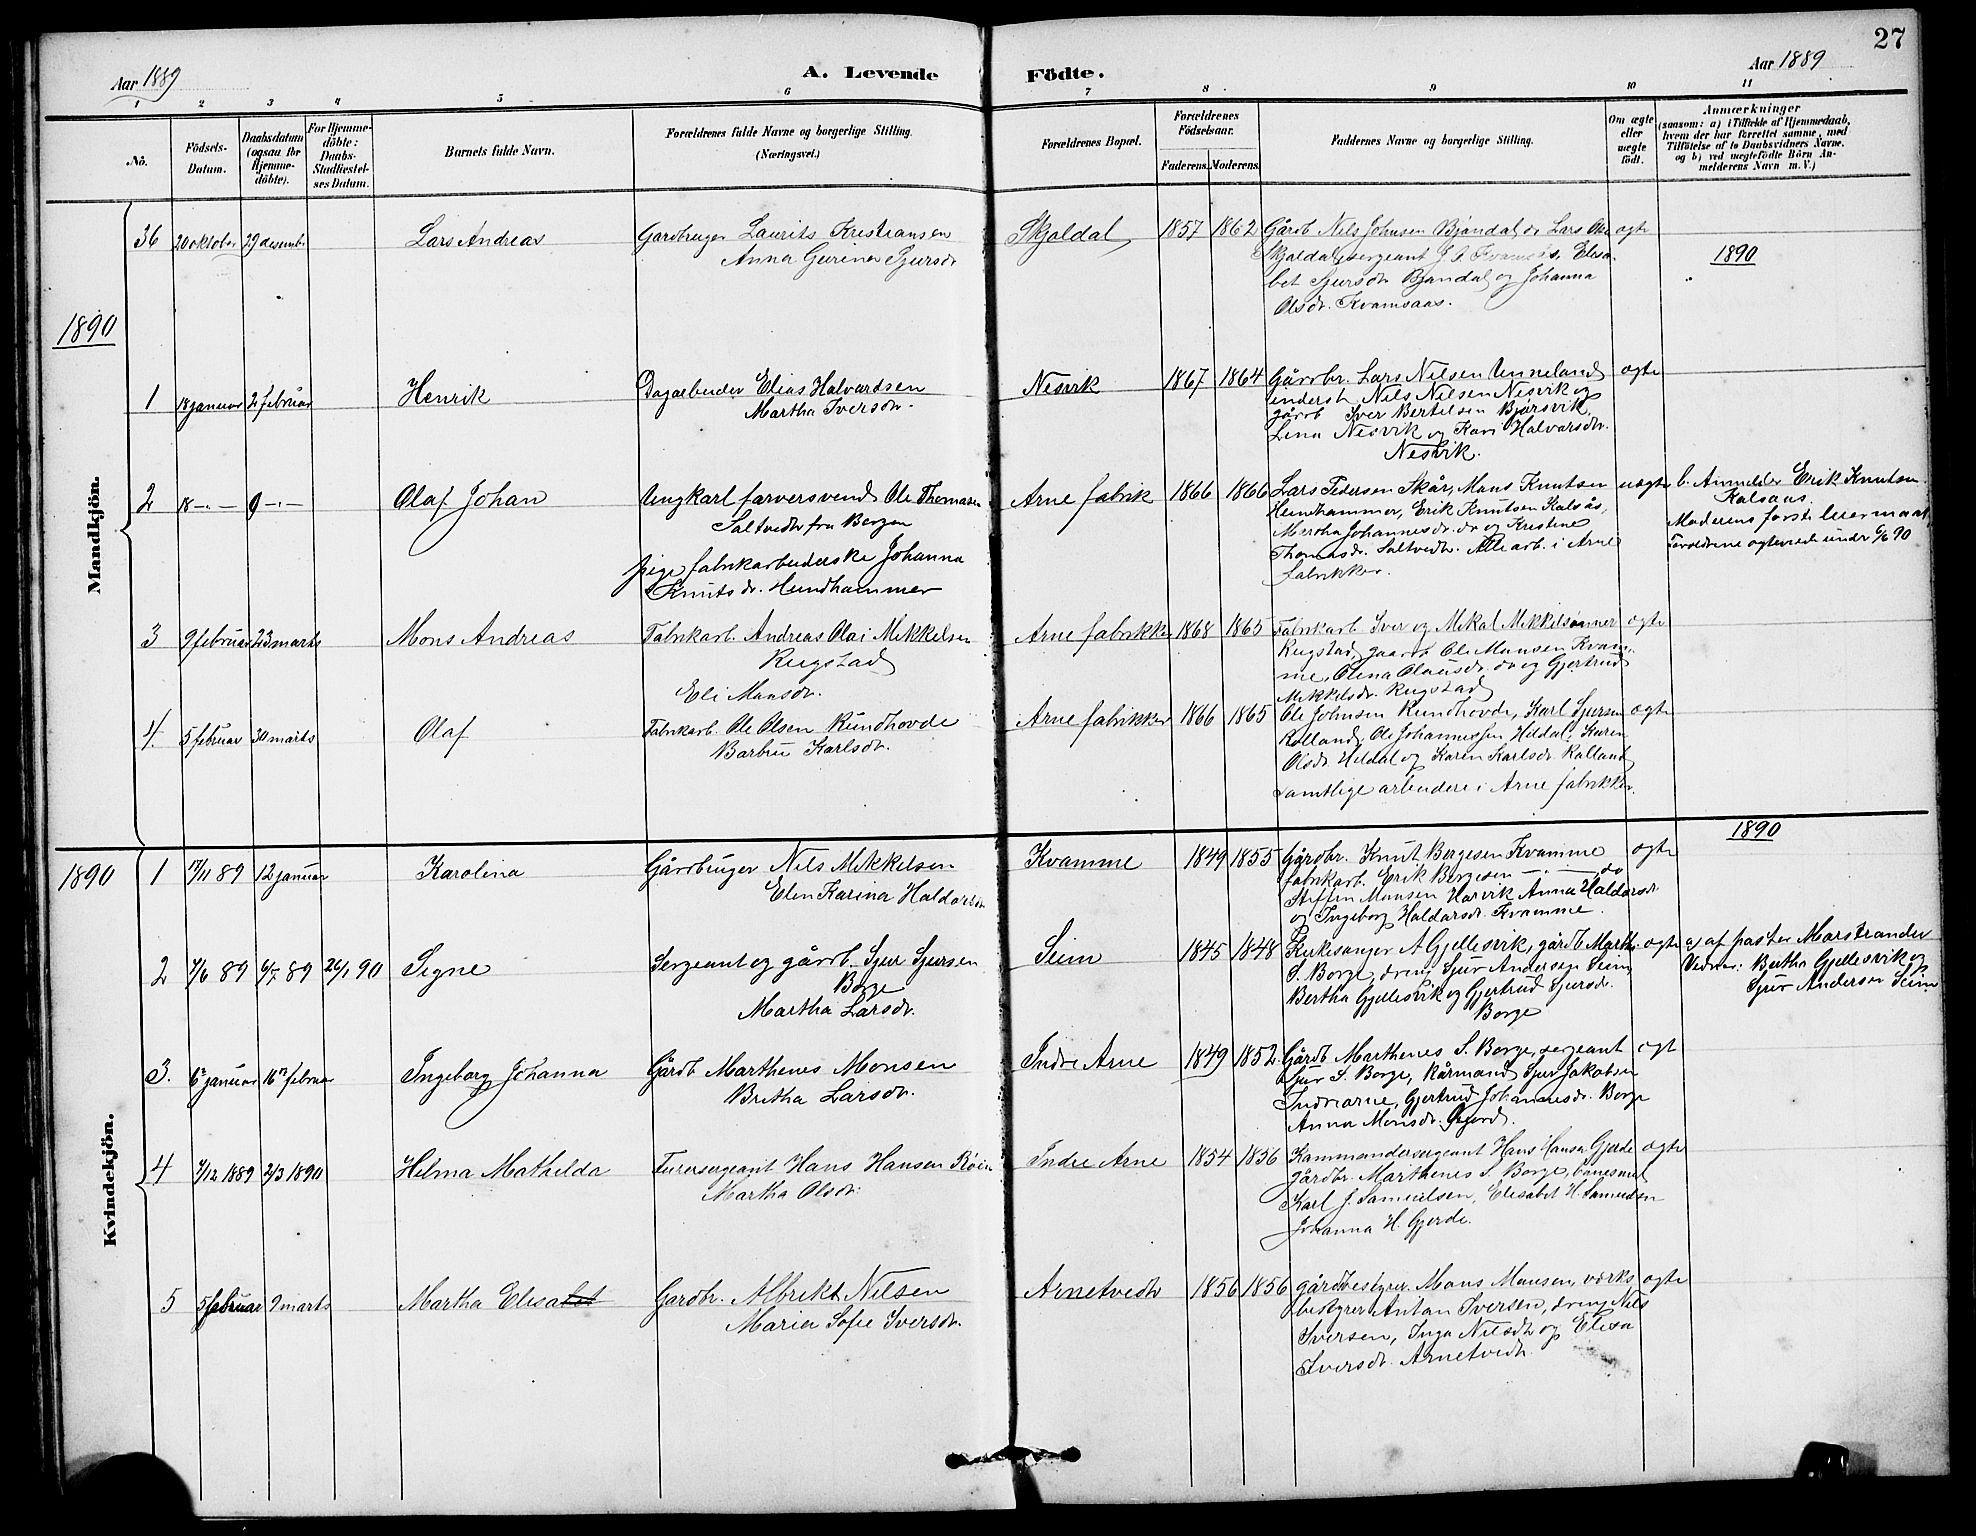 27
Aar 1889
A. Levende Födte.
Aar 1889
1 2 3 4 5 6 7 8 9 10 11
No.
Födsels-Datum.
Daabsdatum (ogsaa for Hjemme-döbte).
For Hjemme-döbte: Daabs-Stadfæstel-ses Datum.
Barnets fulde Navn.
Forældrenes fulde Navne og borgerlige Stilling. (Næringsvei.)
Forældrenes Bopæl.
Forældrenes Födselsaar.
Faderens. Moderens.
Faddernes Navne og borgerlige Stilling.
Om ægte eller uægte födt.
Anmærkninger
(saasom: a) i Tilfælde af Hjemmedaab,
hvem der har forrettet samme, med
Tilföielse af to Daabsvidners Navne.
og b) ved uegtefödte Börn An-
melderens Navn m. V.)
Mandkjön.
36 20 oktober 29 desembr Lars Andreas
Gardbruger Laurits Kristiansen
Anna Gurina Sjursdr
Skjoldal 1857 1862
Gårdb Nils Johnsen Bjøndal, do Lars
Skjoldal, sergeant Elisa-
bet Sjursdr Bjøndal og Johanna
Olsdr. Kvamsaas.
ægte
1890
1890
1 18 januar 2 februar Henrik
Dagarbeider Elias Halvardsen
Martha Iversdr.
Nesvik 1867 1864
Gårdbr. Lars Nilsen Unneland
inderst Nils Nilsen Nesvik og
gårdb Iver Bertelsen Bjørsvik,
Lina Nesvik og Kari Halvarsdr.
Nesvik.
ægte
2 18 -"- 9 -"- Olaf Johan
Ungkarl farversvend Ole Thomasen
Saltvedt fra Bergen
pige fabrikarbeiderske Johanna
Knutsdr. Hundhammer
Arne fabrik 1866 1866
Lars Pedersen Skår, Mons Knutsen
Hundhammer, Erik Knutsen Kalsås,
Mertha Johannesdr. do og Kristine
Thomasdr. Saltvedt. Alle arb. i Arne
fabrikker.
uægte
b. Anmelder Erik Knutsen
Kalsaas.
Moderens første leiermaal
Forældrene ægteviede under 6/6 90
3 9 februar 23 marts Mons Andreas
Fabrikarb. Andreas Olai Mikkelsen
Rugstad
Eli Monsdr.
Arne fabrikker 1868 1865
Fabrikarb Iver og Mikal Mikkelsønner
Rugstad, gaardb Ole Monsen Kvam-
me, Olina Olausdr. do og Gjertrud
Mikkelsdr. Rugstad
ægte
4. 5 februar 30 marts Olaf
Fabrikarb. Ole Olsen Rundhovde
Barbru Karlsdr.
Arne fabrikker 1866 1865
Ole Johnsen Rundhovde, Karl Sjursen
Rolland, Ole Johannessen Hildal, Karen
Olsdr. Hildal og Karen Karlsdr. Rolland
samtlige arbeidere i Arne fabrikker.
ægte
Kvindekjön.
1890
1890
1 17/11 89 12 januar Karolina
Gårdbruger Nils Mikkelsen
Elen Karina Haldorsdr
Kvamme 1849 1855
Gårdbr. Knut Børgesen Kvamme
fabrikarb. Erik Børgesen -"- do
Steffen Monsen Harvik Anna Haldorsdr
og Ingeborg Haldorsdr. Kvamme.
ægte
2 7/6 89 6/7 89 26/1 90 Signe
Sergeant og gårdb. Sjur Sjursen
Borge
Martha Larsdr.
Seim 1845 1848
Kirkesanger A Gjellesvik, gårdb Marth.
S. Borge, dreng Sjur Andersen Seim
Bertha Gjellesvik og Gjertrud Sjursdr.
Borge
ægte
a, af pastor Marstrander
Vidner: Bertha Gjellesvik og
Sjur Andersen Seim
3. 6te januar 16de februar Ingeborg Johanna
Gårdb Marthenes Monsen
Britha Larsdr.
Indre Arne 1849 1852.
Gårdb Marthenes S. Borge, sergeant
Sjur S. Borge, Kårmand Sjur Jakobsen
Indrearne, Gjertrud Johannesdr. Borge
Anna Monsdr.
ægt
4 7/12 1889 2/3 1890 Hilma Mathilda
Furersergeant Hans Hansen Røen
Martha Olsdr.
Indre Arne 1854 1856
Kommandersergeant Hans Hansen Gjerde
gårdbr. Marthenes S. Borge, banesmed
Karl J. Samuelsen, Elisabet H. Samuelsen
Johanna H. Gjerde.
ægte
5 5 februar 9 marts Martha Elisabet
Gardbr. Albrikt Nilsen
Maria Sofie Iversdr.
Arnetvedt 1856 1856
gårdbestyrer Mons Monsen, værks
bestyrer Anton Iversen, dreng Nils
Iversen, Inga Nilsdr og Elisa
Iversdr. Arnetvedt.
ægte